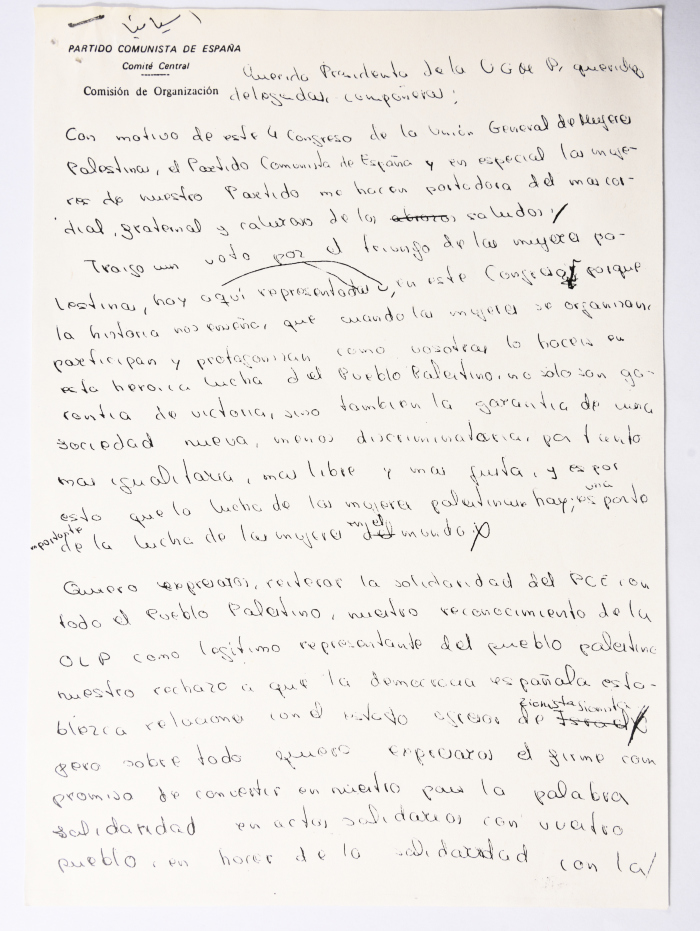 اسبانيا
PARTIDO COMUNISTA DE ESPAÑA
Comité Central
Comisión de Organización
Querida Presidenta de la UG de P, queridas
delegadas, compañeras;
Con motivo de este 4 Congreso de la Unión General de Mujeres
Palestinas, el Partido Comunista de España y en especial las muje-
res de nuestro Partido me hacen portadora del mas cor-
dial, fraternal y caluroso de los abrazos saludos,
Traigo un voto por el triunfo de las mujeres pa-
lestinas, hoy aquí representadas, en este Congreso, porque
la historia nos enseña, que cuando las mujeres se organizan,
participan y protagonizan como vosotras lo haceis en
esta heroica lucha del Pueblo Palestino, no solo son ga-
rantia de victoria, sino tambien la garantia de una
sociedad nueva, menos discriminatoria, por tanto
mas igualitaria, mas libre y mas justa, y es por
esto que la lucha de las mujeres palestinas hoy, es una parte
importante de la lucha de las mujeres del mundo.
Quiero expresaros, reiterar la solidaridad del PCE con
todo el Pueblo Palestino, nuestro reconocimiento de la
OLP como legitimo representante del pueblo palestino
nuestro rechazo a que la democracia española esta-
blezca relaciones con el estado agresor de Israel sionista
pero sobre todo quiero expresaros el firme com
promiso de convertir en nuestro pais la palabra
solidaridad en actos solidarios con vuestro
pueblo, en hacer de la solidaridad con la/